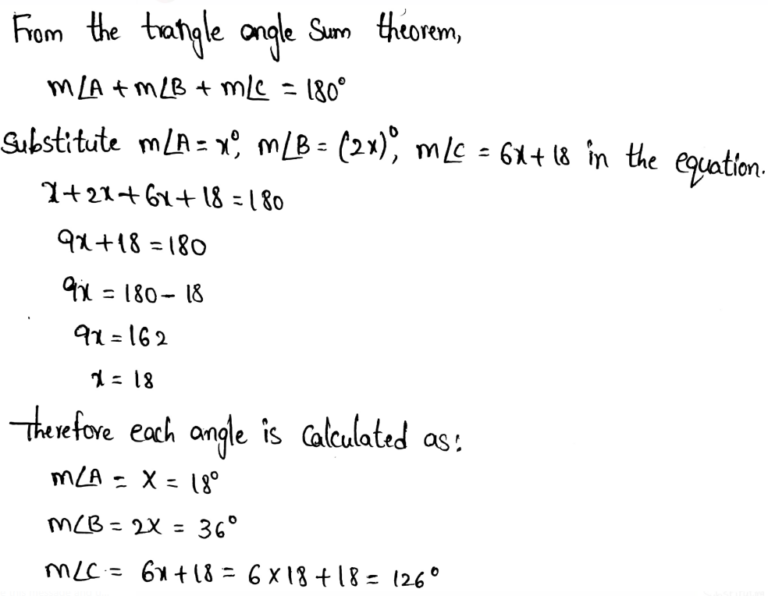 From the trangle angle Sum theorem,
m∠A + m∠B + m∠C = 180°
Substitute m∠A = x°, m∠B = (2x)°, m∠C = 6x + 18 in the equation.
x + 2x + 6x + 18 = 180
9x + 18 = 180
9x = 180 - 18
9x = 162
x = 18
Therefore each angle is Calculated as:
m∠A = x = 18°
m∠B = 2x = 36°
m∠C = 6x + 18 = 6 x 18 + 18 = 126°